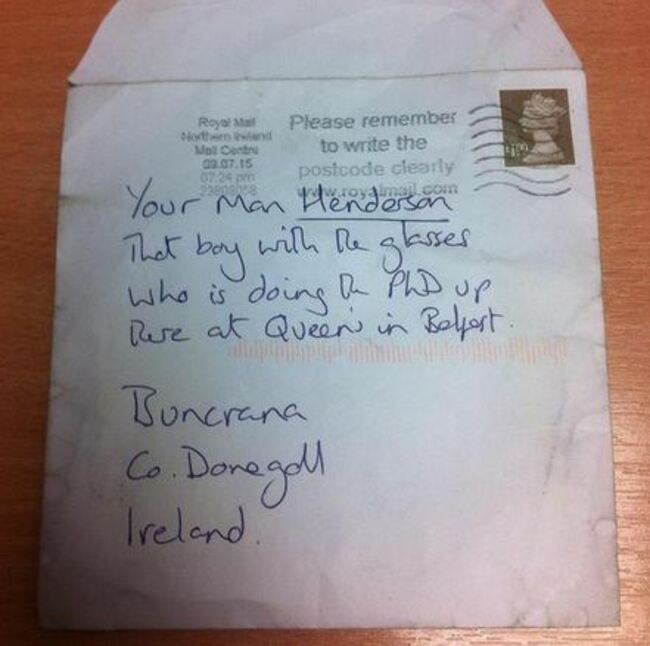 Royal Mail
Northern Ireland
Mail Centre
09.07.15
07.24 pm
Please remember
to write the
postcode clearly
www.royalmail.com
£1.00
Your Man Henderson
That boy with the glasses
who is doing the PhD up
there at Queen's in Belfast.
Buncrana
Co. Donegall
Ireland.